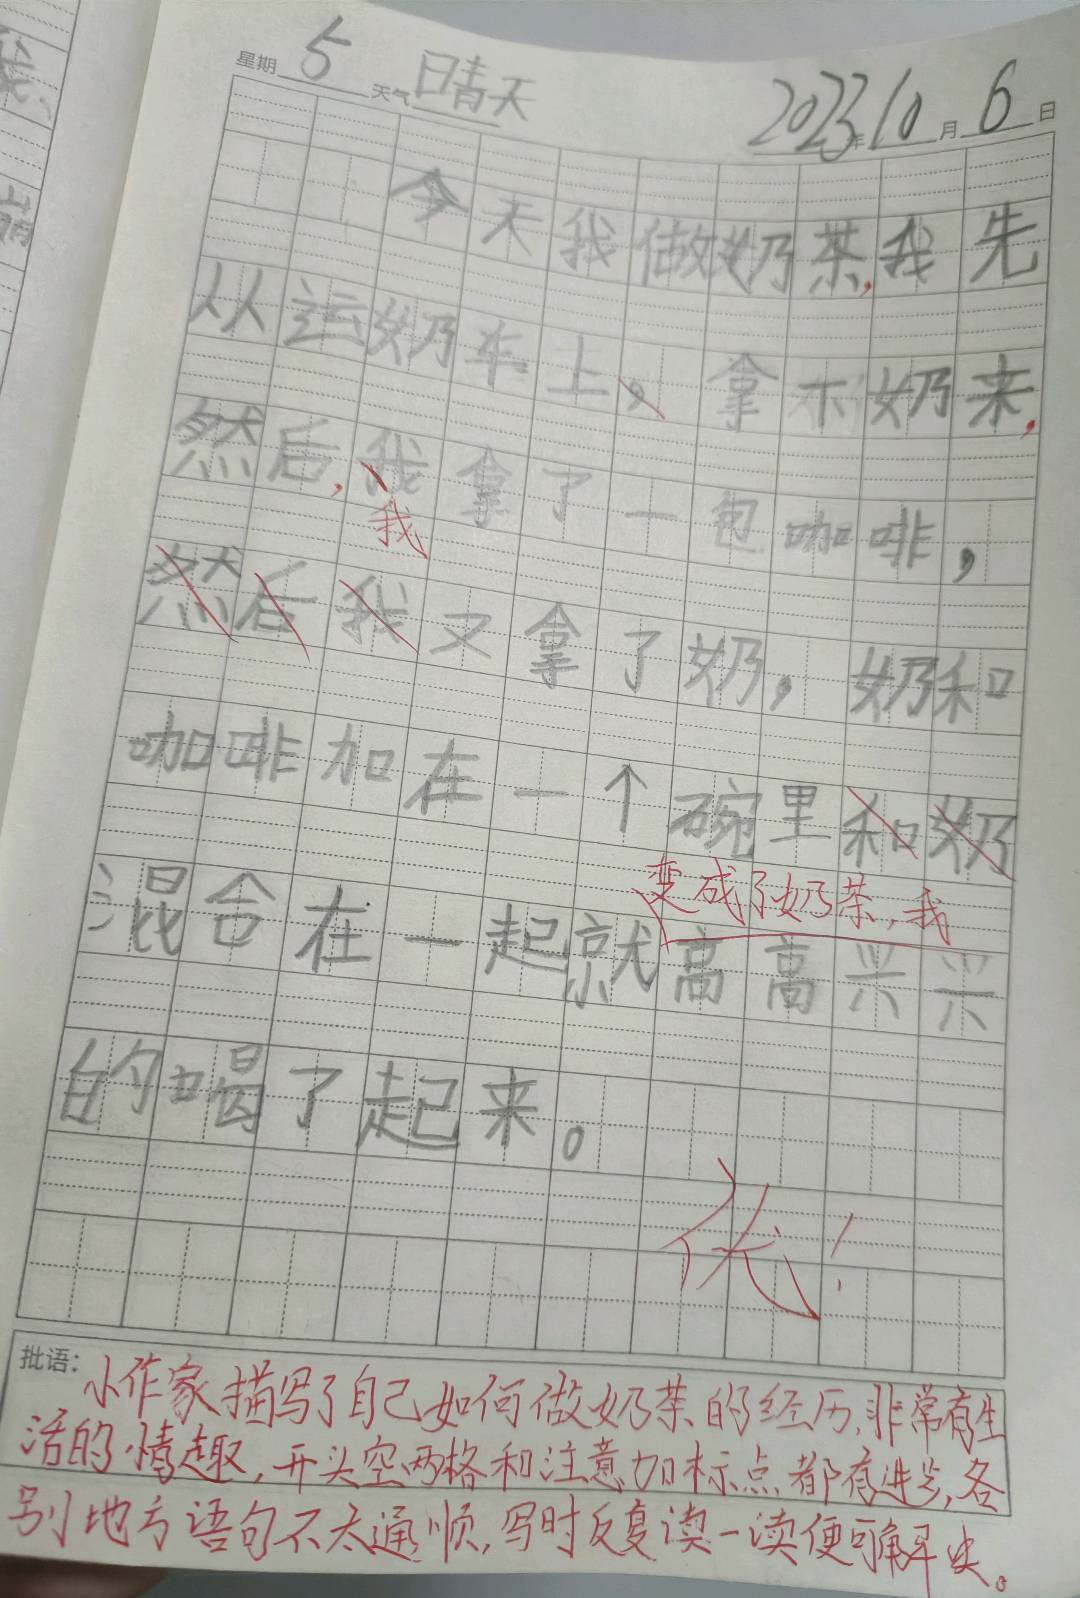 星期 5 天气 晴天 2023年10月6日
今天我做奶茶,我先
从运奶车上,拿下奶来,
然后,我拿了一包咖啡,
我
然后我又拿了奶,奶和
咖啡加在一个碗里和奶
变成了奶茶,我
混合在一起就高高兴兴
的喝了起来。
优!
批语:小作家描写了自己如何做奶茶的经历,非常有生
活的情趣,开头空两格和注意加标点都有进步,各
别地方语句不太通顺,写时反复读一读便可解决。